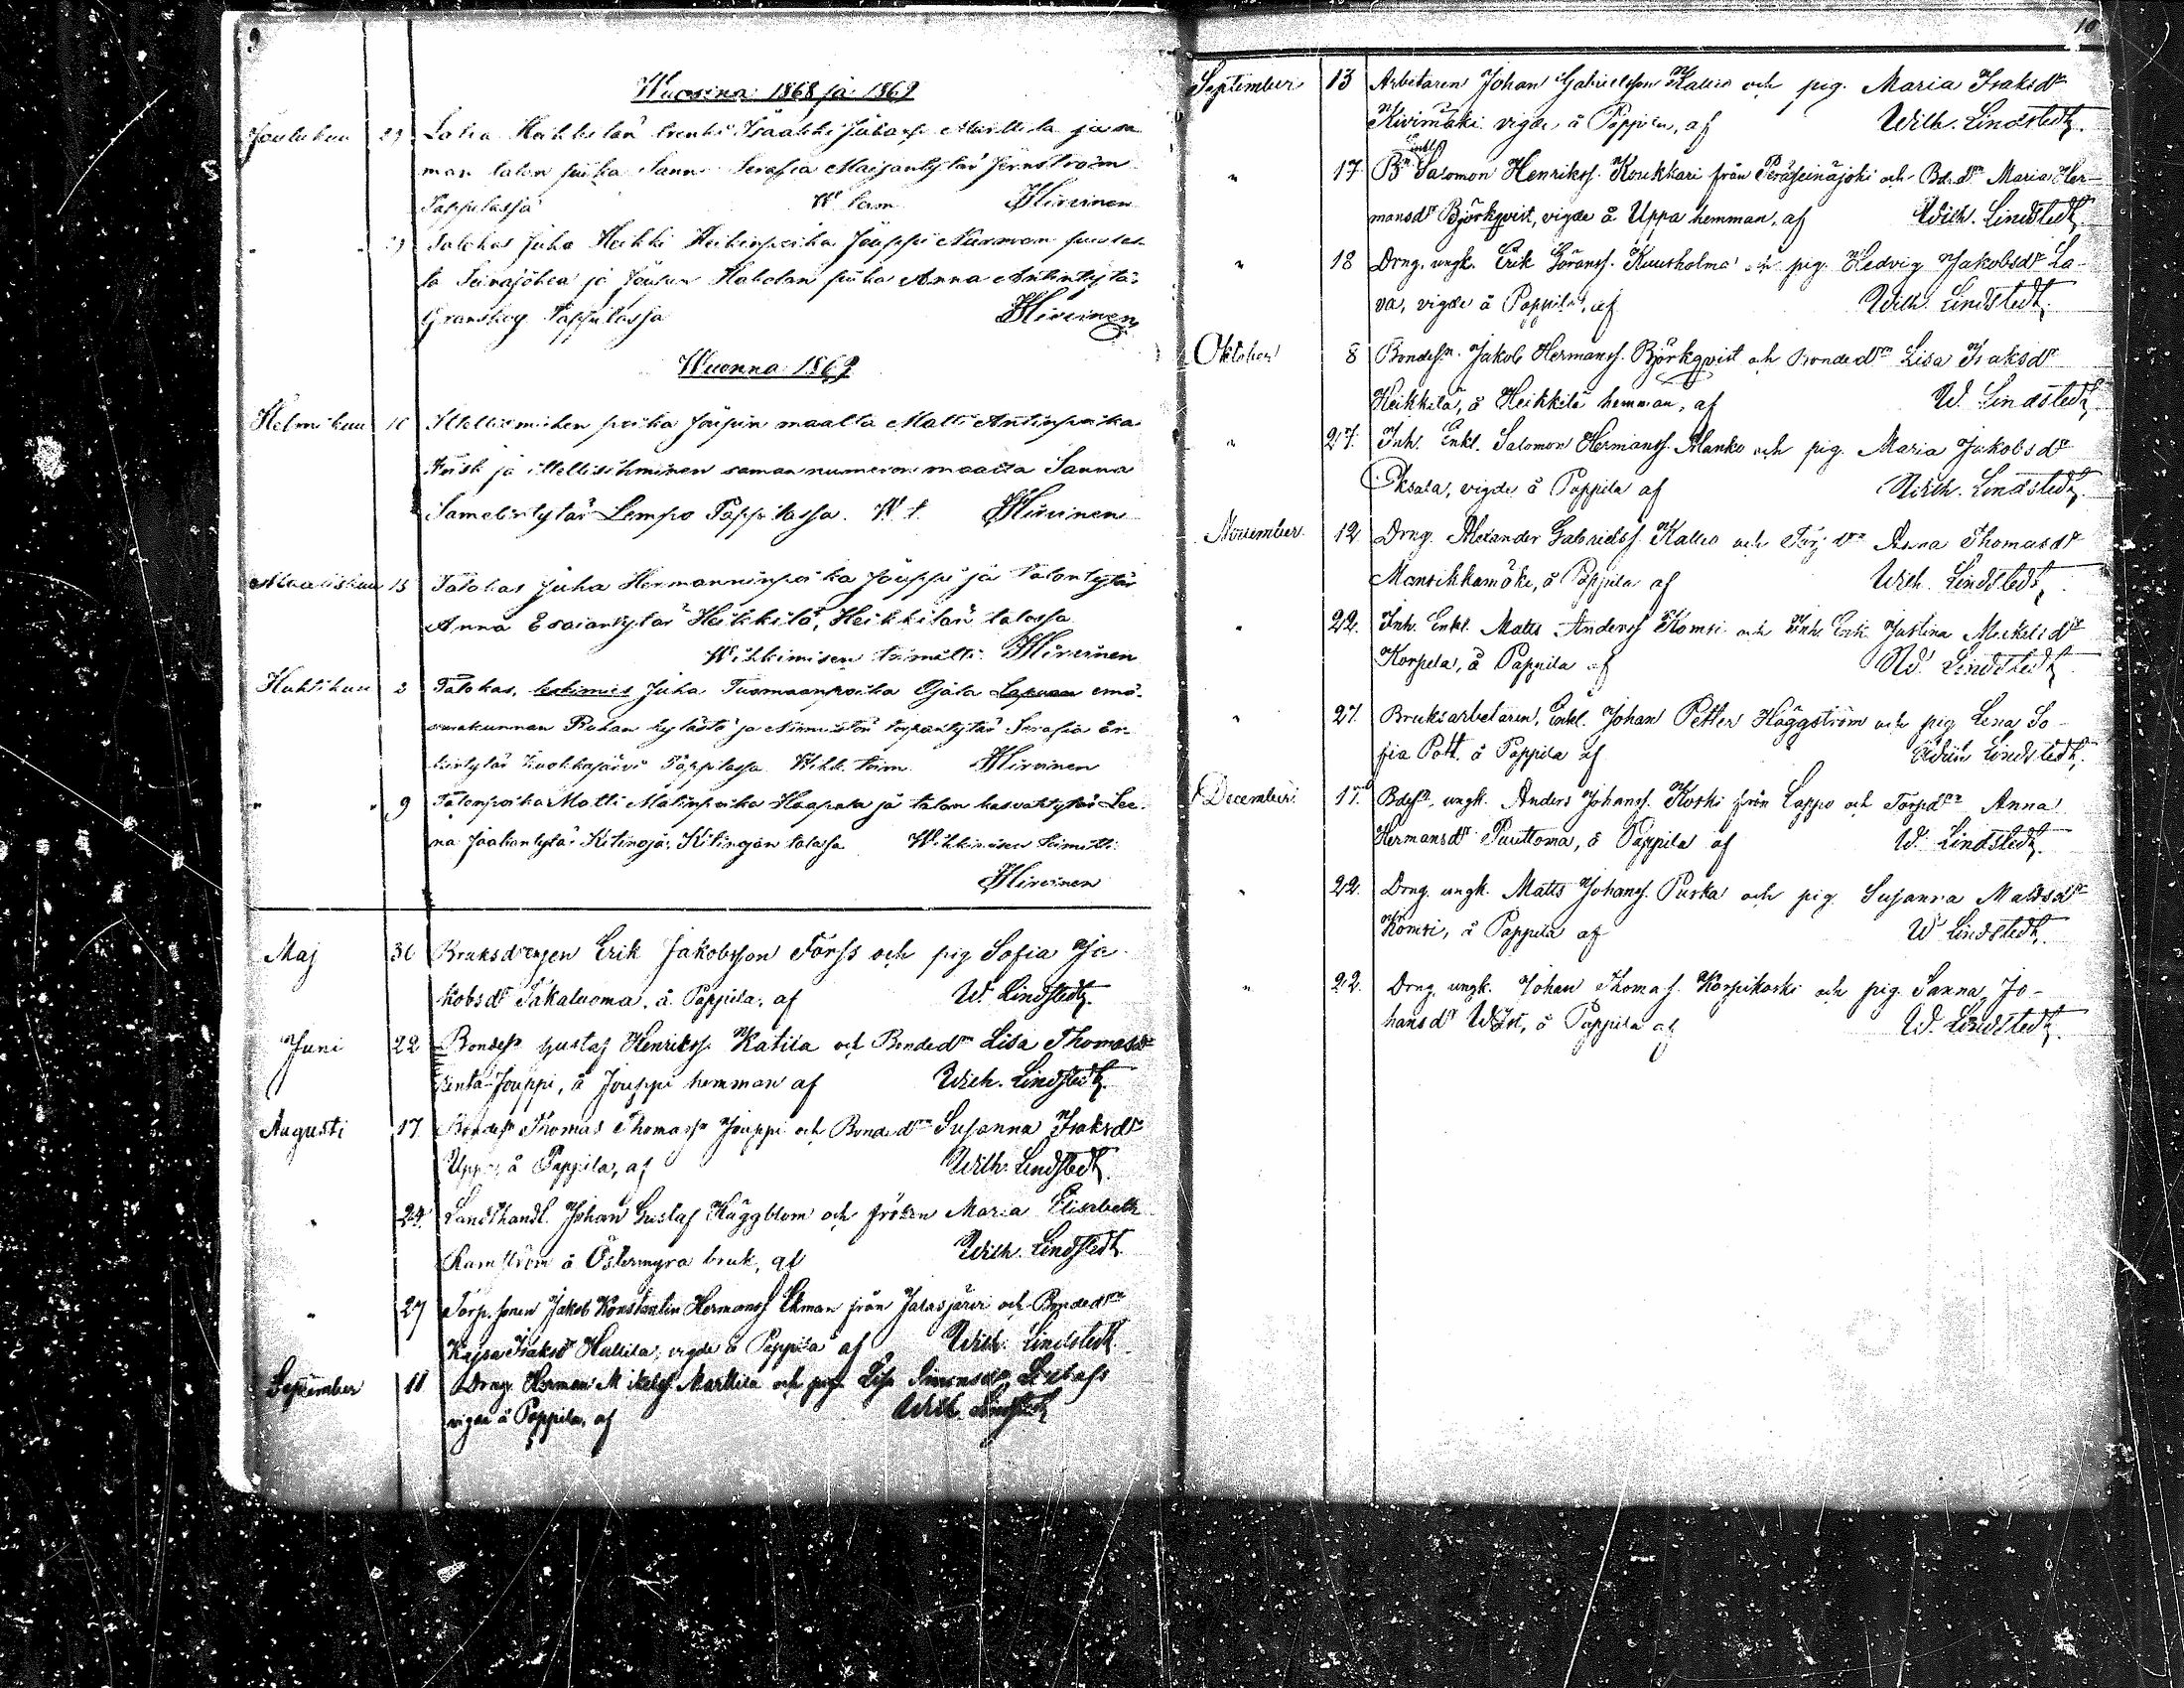 9
Wuosina 1868 ja 1869
Joulukuu 29 Laha Heikkilän trenki Isaakki Juhanp. Marttila ja sa
man talon piika Sanna Serafia Maijantytär Jernström
Pappilassa W. toim. Hirvinen
" " 29 Talokas Juho Heikki Heikinpoika Jouppi Nurmon puoles
ta Seinäjokea ja Joupin Hakolan piika Anna Antintytär
Granskog Pappilassa Hirvinen
Wuonna 1869
Helmikuu 10 Itellismiehen poika Joupin maalta Matti Antinpoika
Frisk ja itellisihminen saman numeron maalta Sanna
Samelintytär Lempo Pappilassa. W. t. Hirvinen
Maaliskuu 15 Talokas Juha Hermanninpoika Jouppi ja talontytär
Anna Esaiantytär Heikkilä, Heikkilän talossa
Wihkimisen toimitti Hirvinen
Huhtikuu 2 Talokas, leskimies Juha Tuomaanpoika Ojala Lapuan emä-
seurakunnan Ruhan kylästä ja Niemistön torpantytär Serafia Er-
kintytär Kuokkajärvi Pappilassa Wihk. toim. Hirvinen
" " 9 Talonpoika Matti Matinpoika Haapala ja talon kasvattytär Lee-
na Jaakontytär Kitinoja, Kitinojan talossa Wihkimisen toimitti
Hirvinen
Maj 30 Bruksdrengen Erik Jakobsson Förss och pig Sofia Ja-
kobsdr Takaluoma, å Pappila, af W. Lindstedt.
Juni 22 Bondesn Gustaf Henrikss. Katila och Bondedtr Lisa Thomasdr
Pentä-Jouppi, å Jouppi hemman af Wilh. Lindstedt.
Augusti 17 Bondesn Thomas Thomass. Jouppi och Bondedtr Susanna Isaksdr
Uppa, å Pappila, af Wilh. Lindstedt
" 24. Landthandl. Johan Gustaf Häggblom och fröken Maria Elisabeth
Ramström å Östermyra bruk, af Wilh. Lindstedt.
" 27 Torp.sonen Jakob Konstantin Hermanss Ekman från Jalasjärvi och Bondedtr
Kajsa Isaksdr Hallila, vigde å Pappila af Wilh. Lindstedt.
September 11 Dräng. Herman Mikels. Marttila och pig. Lisa Simonsdr
vigde å Pappila, af Wilh. Lindstedt
10
September 13 Arbetaren Johan Gabrielsson Kallio och pig. Maria Isaksdr
Kivimäki vigde å Pappila, af Wilh. Lindstedt.
Enkl.
" 17 Bn Salomon Henrikss. Koukkari från Peräseinäjoki och Bdedtr Maria Her-
mansdr Björkqvist, vigde å Uppa hemman, af Wilh. Lindstedt
" 18 Drng. ungk. Erik Göranss. Kuusholma och pig. Hedvig Jakobsdr La-
va, vigde å Pappila, af Wilh. Lindstedt.
Oktober 8 Bondesn. Jakob Hermanss. Björkqvist och Bondedtr Lisa Isaksdr
Heikkilä, å Heikkilä hemman, af W. Lindstedt
" 27. Inh. Enkl. Salomon Hermanss. Hanko och pig. Maria Jakobsdr
Oksala, vigde å Pappila af Wilh. Lindstedt.
November 12 Drng. Alexander Gabrielss. Kallio och Torpdtr Anna Thomasdr
Mansikkamäki, å Pappila af Wilh. Lindstedt.
" 22. Inh. Enkl. Matts Anderss Komsi och Inh. Enk. Justina Mickelsdr
Korpela, å Pappila af W. Lindstedt
" 27. Bruksarbetaren, Enkl. Johan Petter Häggström och pig Lena So-
fia Pott. å Pappila af Wilh Lindstedt.
December 17. Bdesn, ungk. Anders Johanss. Koski från Lappo och Torpdtr Anna
Hermansdr Puuttoma, å Pappila af W. Lindstedt.
" 22. Drng. ungk. Matts Johanss. Puska och pig Susanna Mattsdr
Komsi, å Pappila af W Lindstedt.
" 22. Drng. ungk. Johan Thomass. Korpikoski och pig. Sanna Jo-
hansdr Wist, å Pappila af W. Lindstedt.